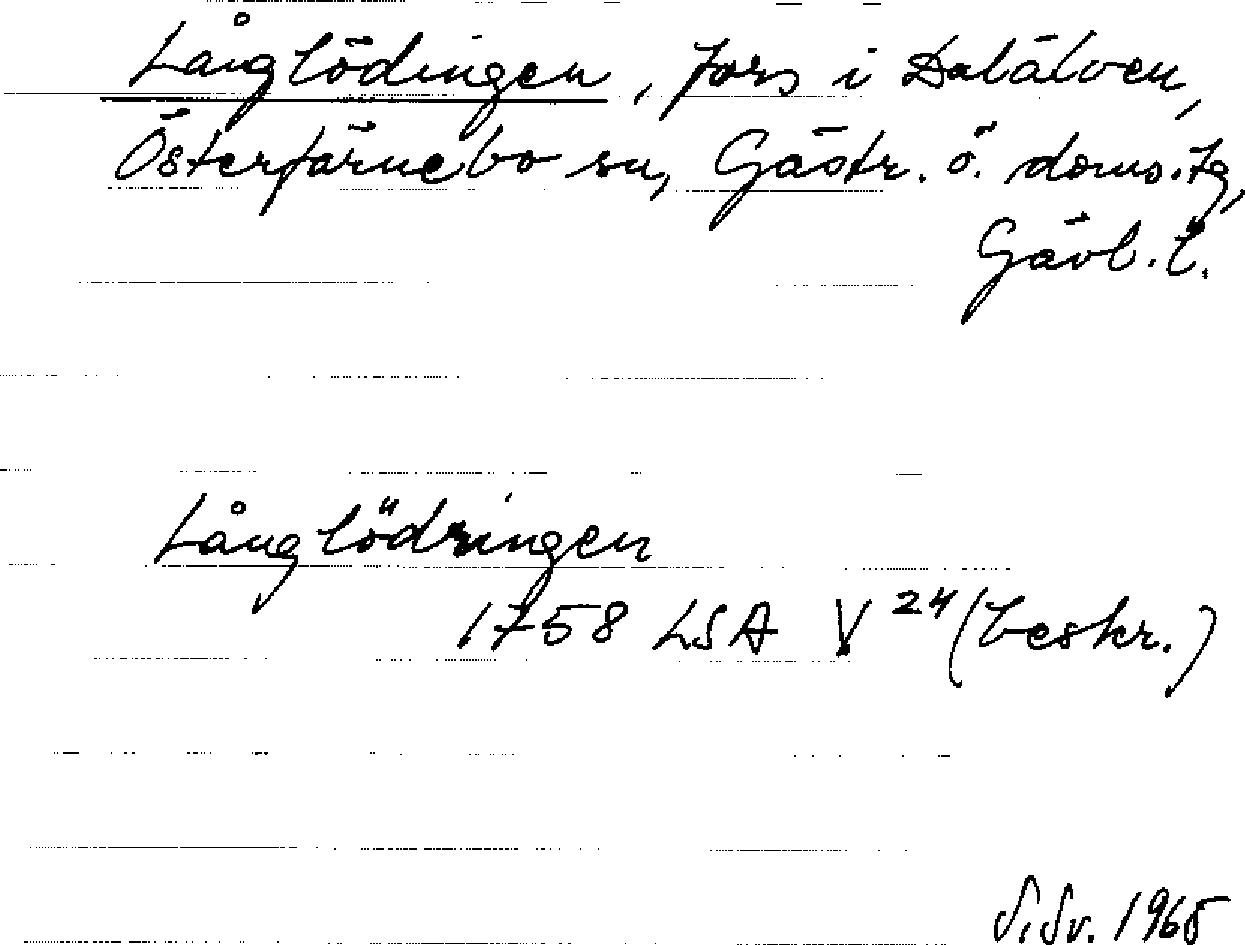 Långlödingen, fors i Dalälven,
Österfärnebo sn, Gästr. ö. doms.tg,
Gävl. l.
Långlödringen
1758 LSA V 24 (beskr.)
S. Sv. 1965